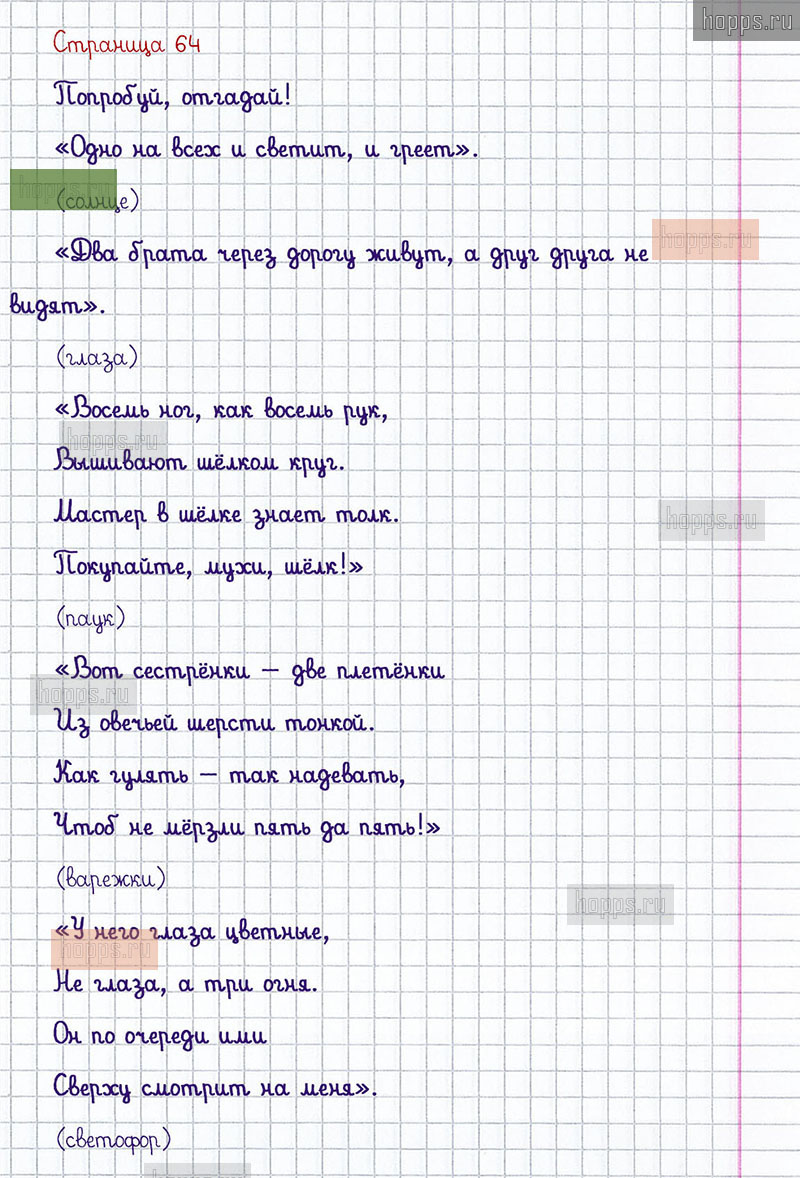 hopps.ru
Страница 64
Попробуй, отгадай!
«Одно на всех и светит, и греет».
hopps.ru
(солнце)
hopps.ru
«Два брата через дорогу живут, а друг друга не
видят».
(глаза)
«Восемь ног, как восемь рук,
hopps.ru
Вышивают шёлком круг.
Мастер в шёлке знает толк.
hopps.ru
Покупайте, мухи, шёлк!»
(паук)
«Вот сестрёнки – две плетёнки
hopps.ru
Из овечьей шерсти тонкой.
Как гулять – так надевать,
Чтоб не мёрзли пять да пять!»
(варежки)
hopps.ru
«У него глаза цветные,
hopps.ru
Не глаза, а три огня.
Он по очереди ими
Сверху смотрит на меня».
(светофор)
hopps.ru